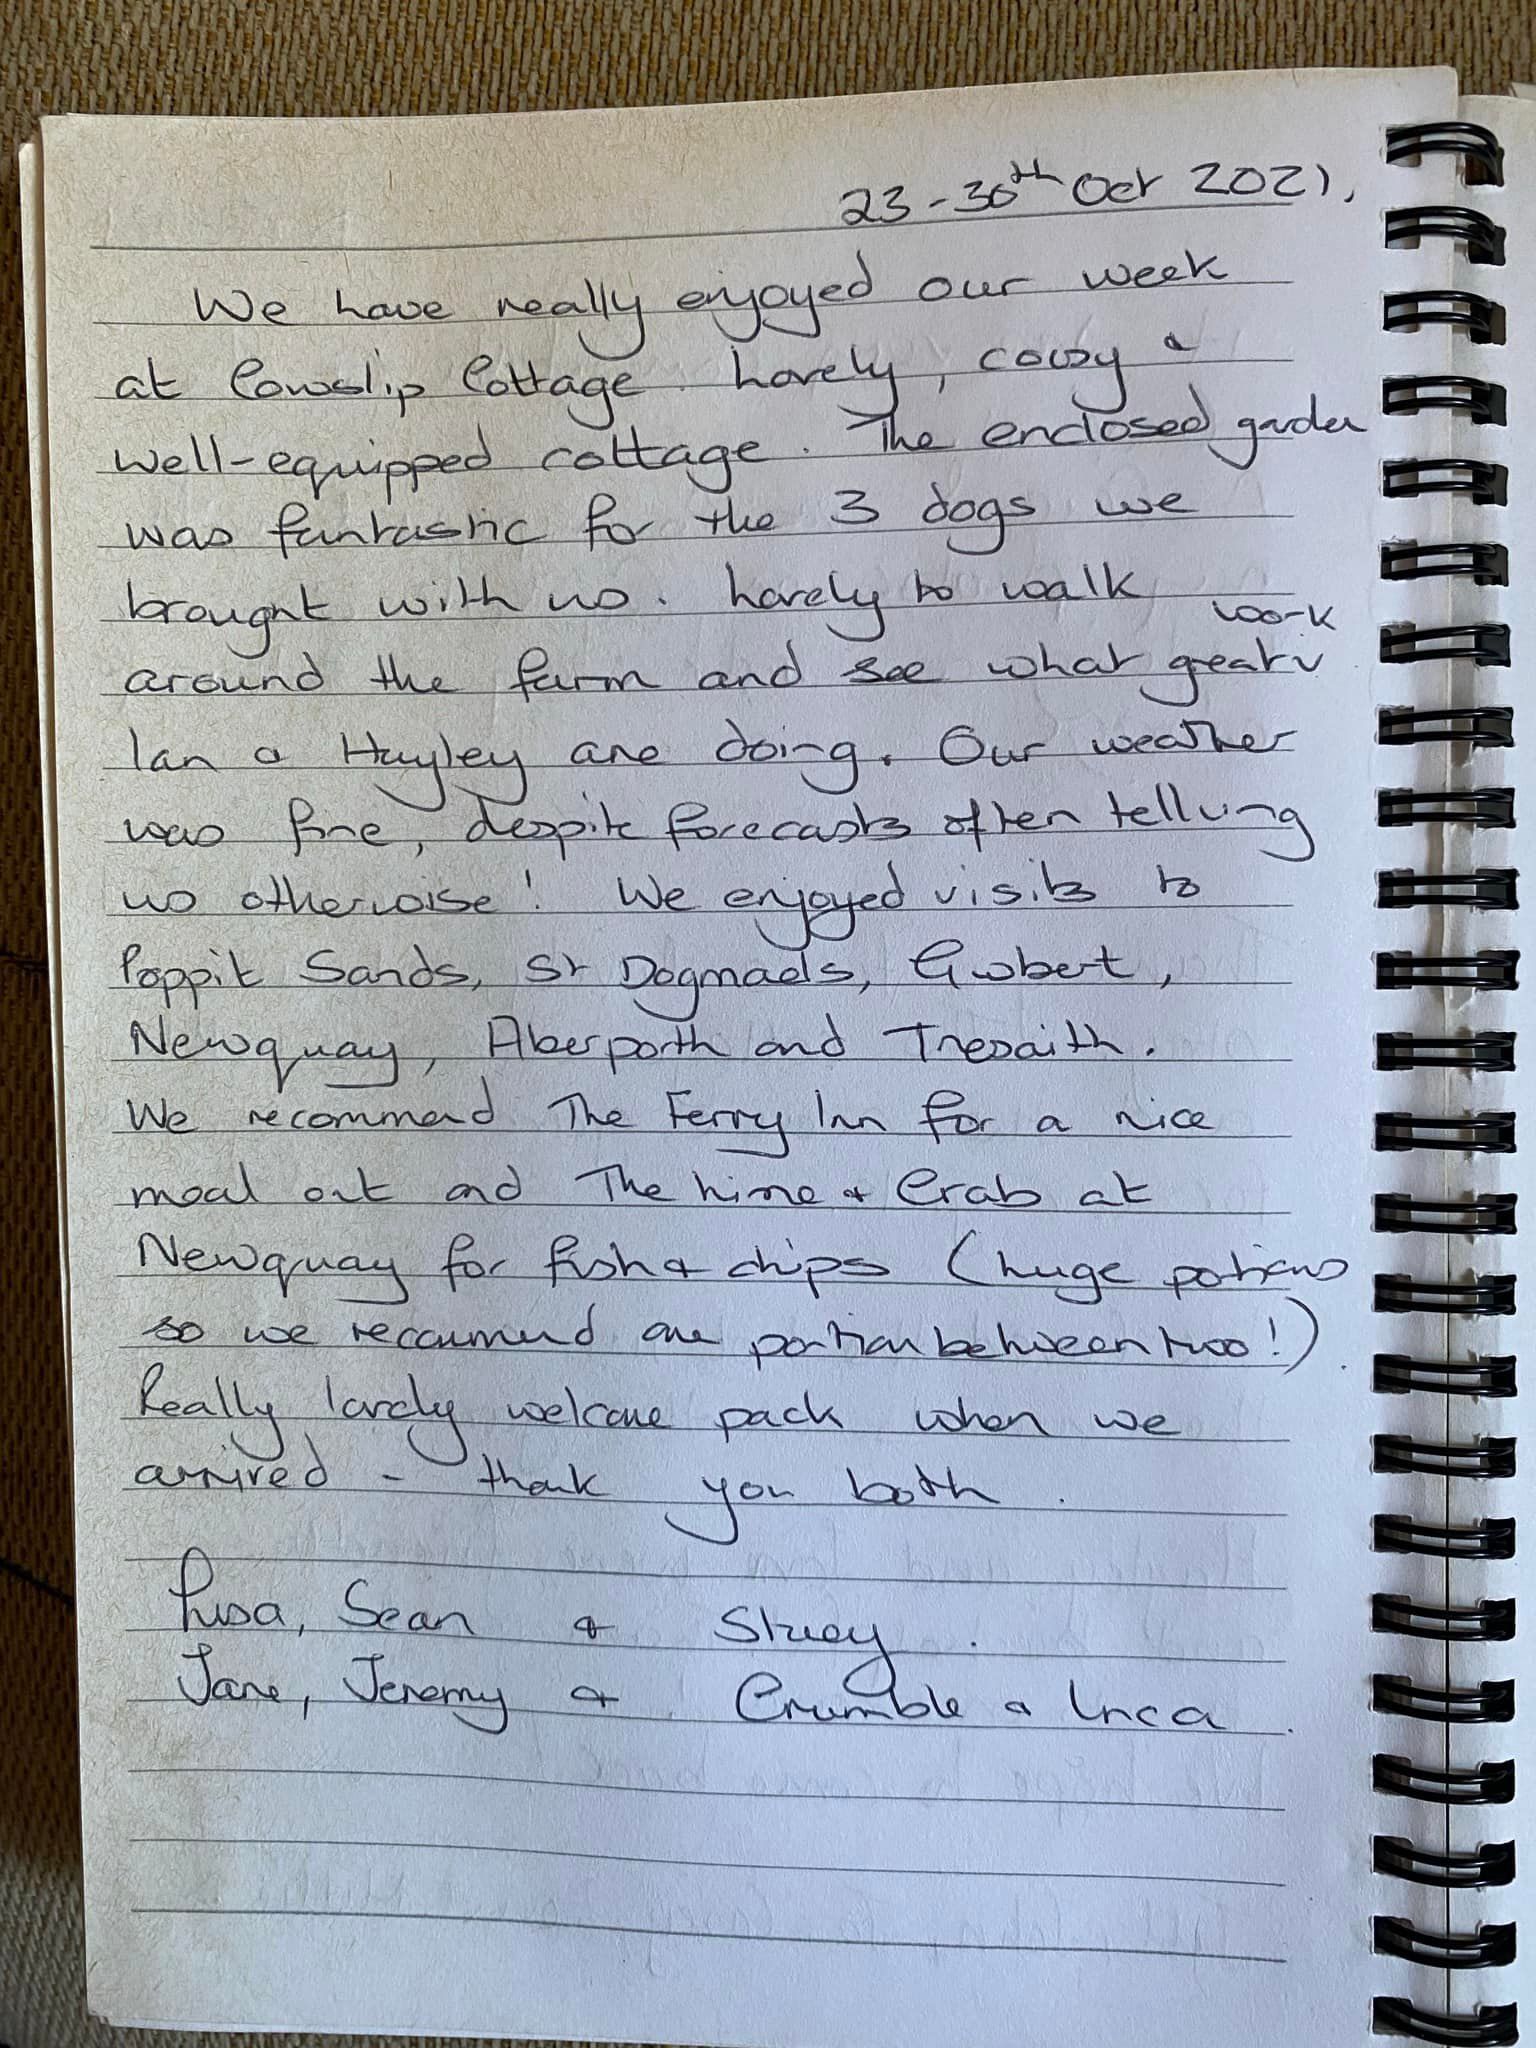 23-30th Oct 2021.
We have really enjoyed our week
at Cowslip Cottage. Lovely, cosy &
well-equipped cottage. The enclosed garden
was fantastic for the 3 dogs we
brought with us. Lovely to walk
work
around the farm and see what great v
Ian & Hayley are doing. Our weather
was fine, despite forecasts often telling
us otherwise! We enjoyed visits to
Poppit Sands, St Dogmaels, Gwbert,
Newquay, Aberporth and Tresaith.
We recommend The Ferry Inn for a nice
meal out and The Lime & Crab at
Newquay for fish & chips (huge portions
so we recommend one portion between two!).
Really lovely welcome pack when we
arrived - thank you both.
Lisa, Sean & Stuey.
Jane, Jeremy & Crumble & Inca.